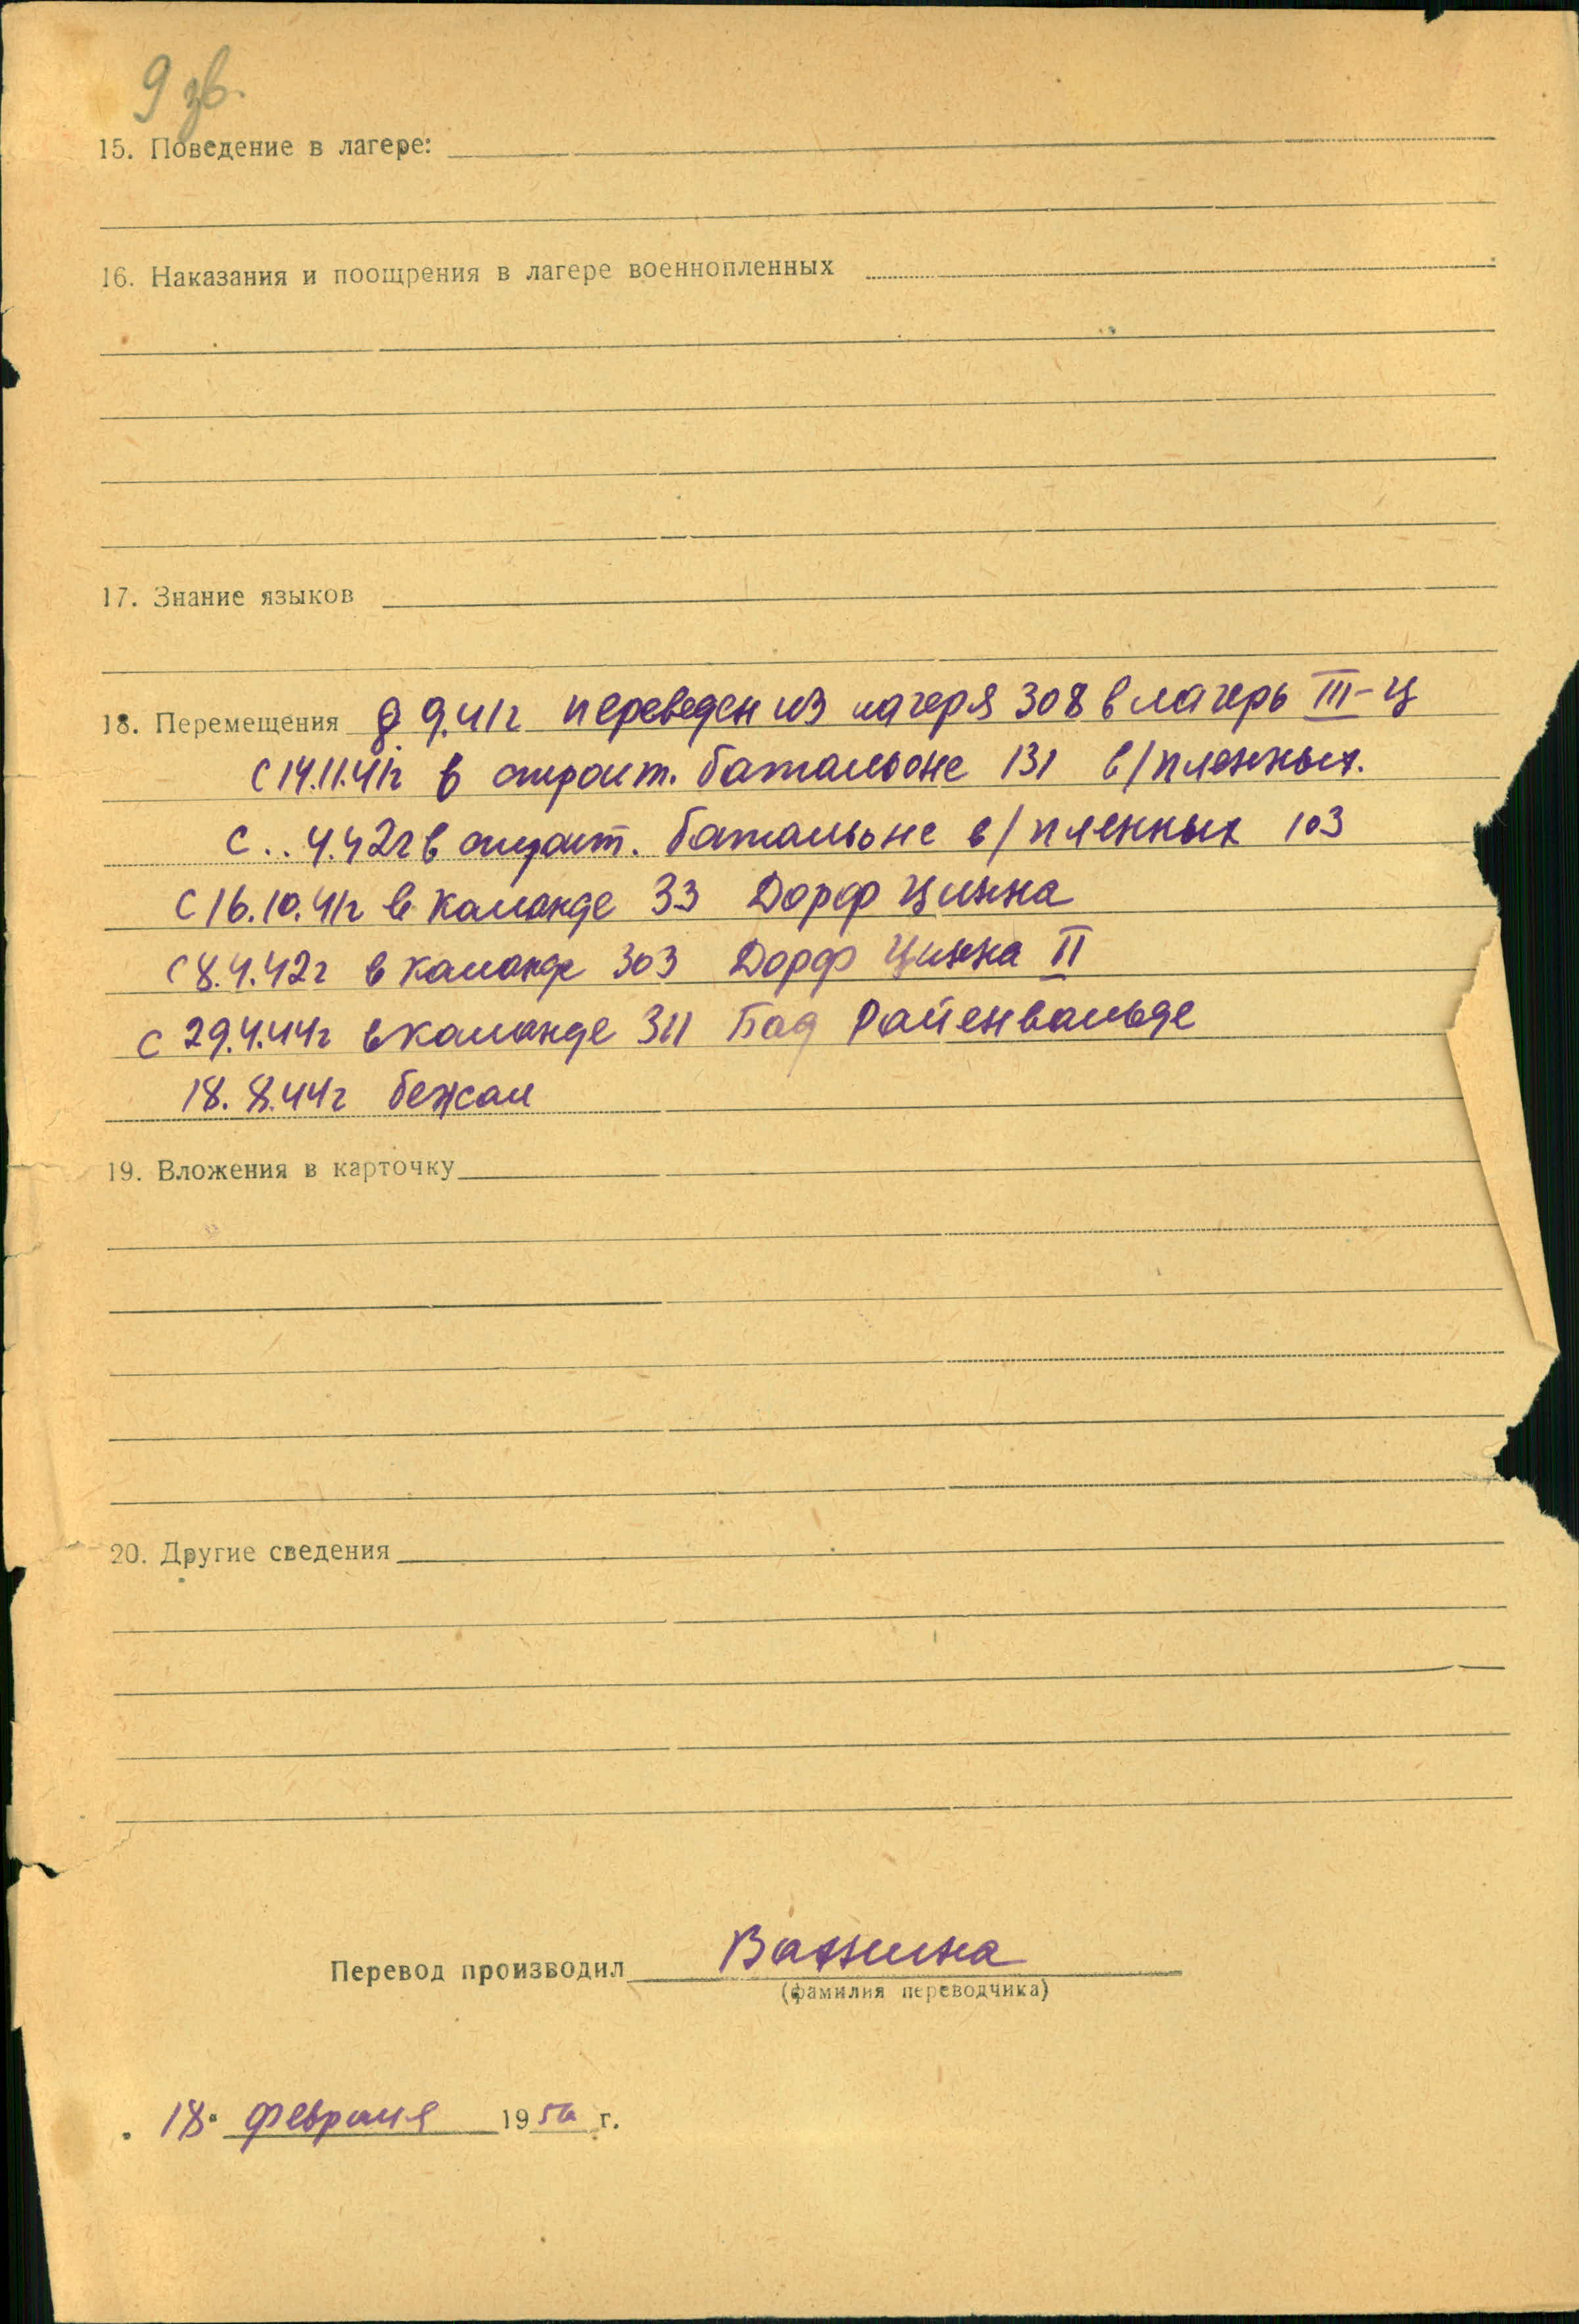 9 зв.
15. Поведение в лагере:
16. Наказания и поощрения в лагере военнопленных
17. Знание языков
18. Перемещения 8.9.41г переведен из лагеря 308 в лагерь III-Ц
С 14.11.41г в строит. батальоне 131 в/пленных.
С .. 4.42г в строит. батальоне в/пленных 103
С 16.10.41г в команде 33 Дорф Цинна
С 8.4.42г в команде 303 Дорф Цинна II
С 29.4.44г в команде 311 Бад Райенвальде
18.8.44г бежал
19. Вложения в карточку
20. Другие сведения
Перевод производил
(фамилия переводчика)
18. февраля 19 г.